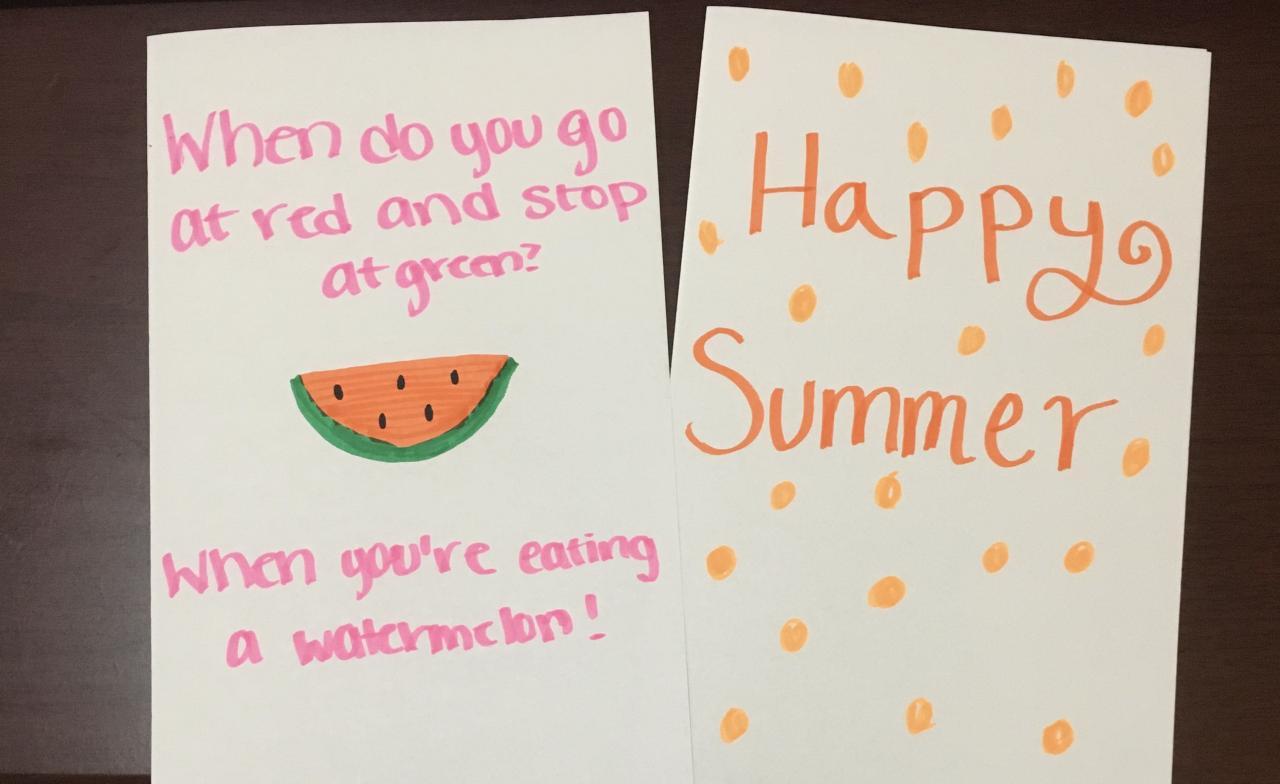 When do you go
at red and stop
at green?
When you're eating
a watermelon!
Happy
Summer